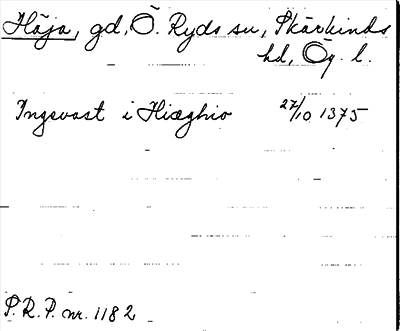 Höja, gd, Ö. Ryds sn, Skärkinds
hd, Ög. l.
Ingevast i Hiæghio 27/10 1375
P.R.P. nr. 1182